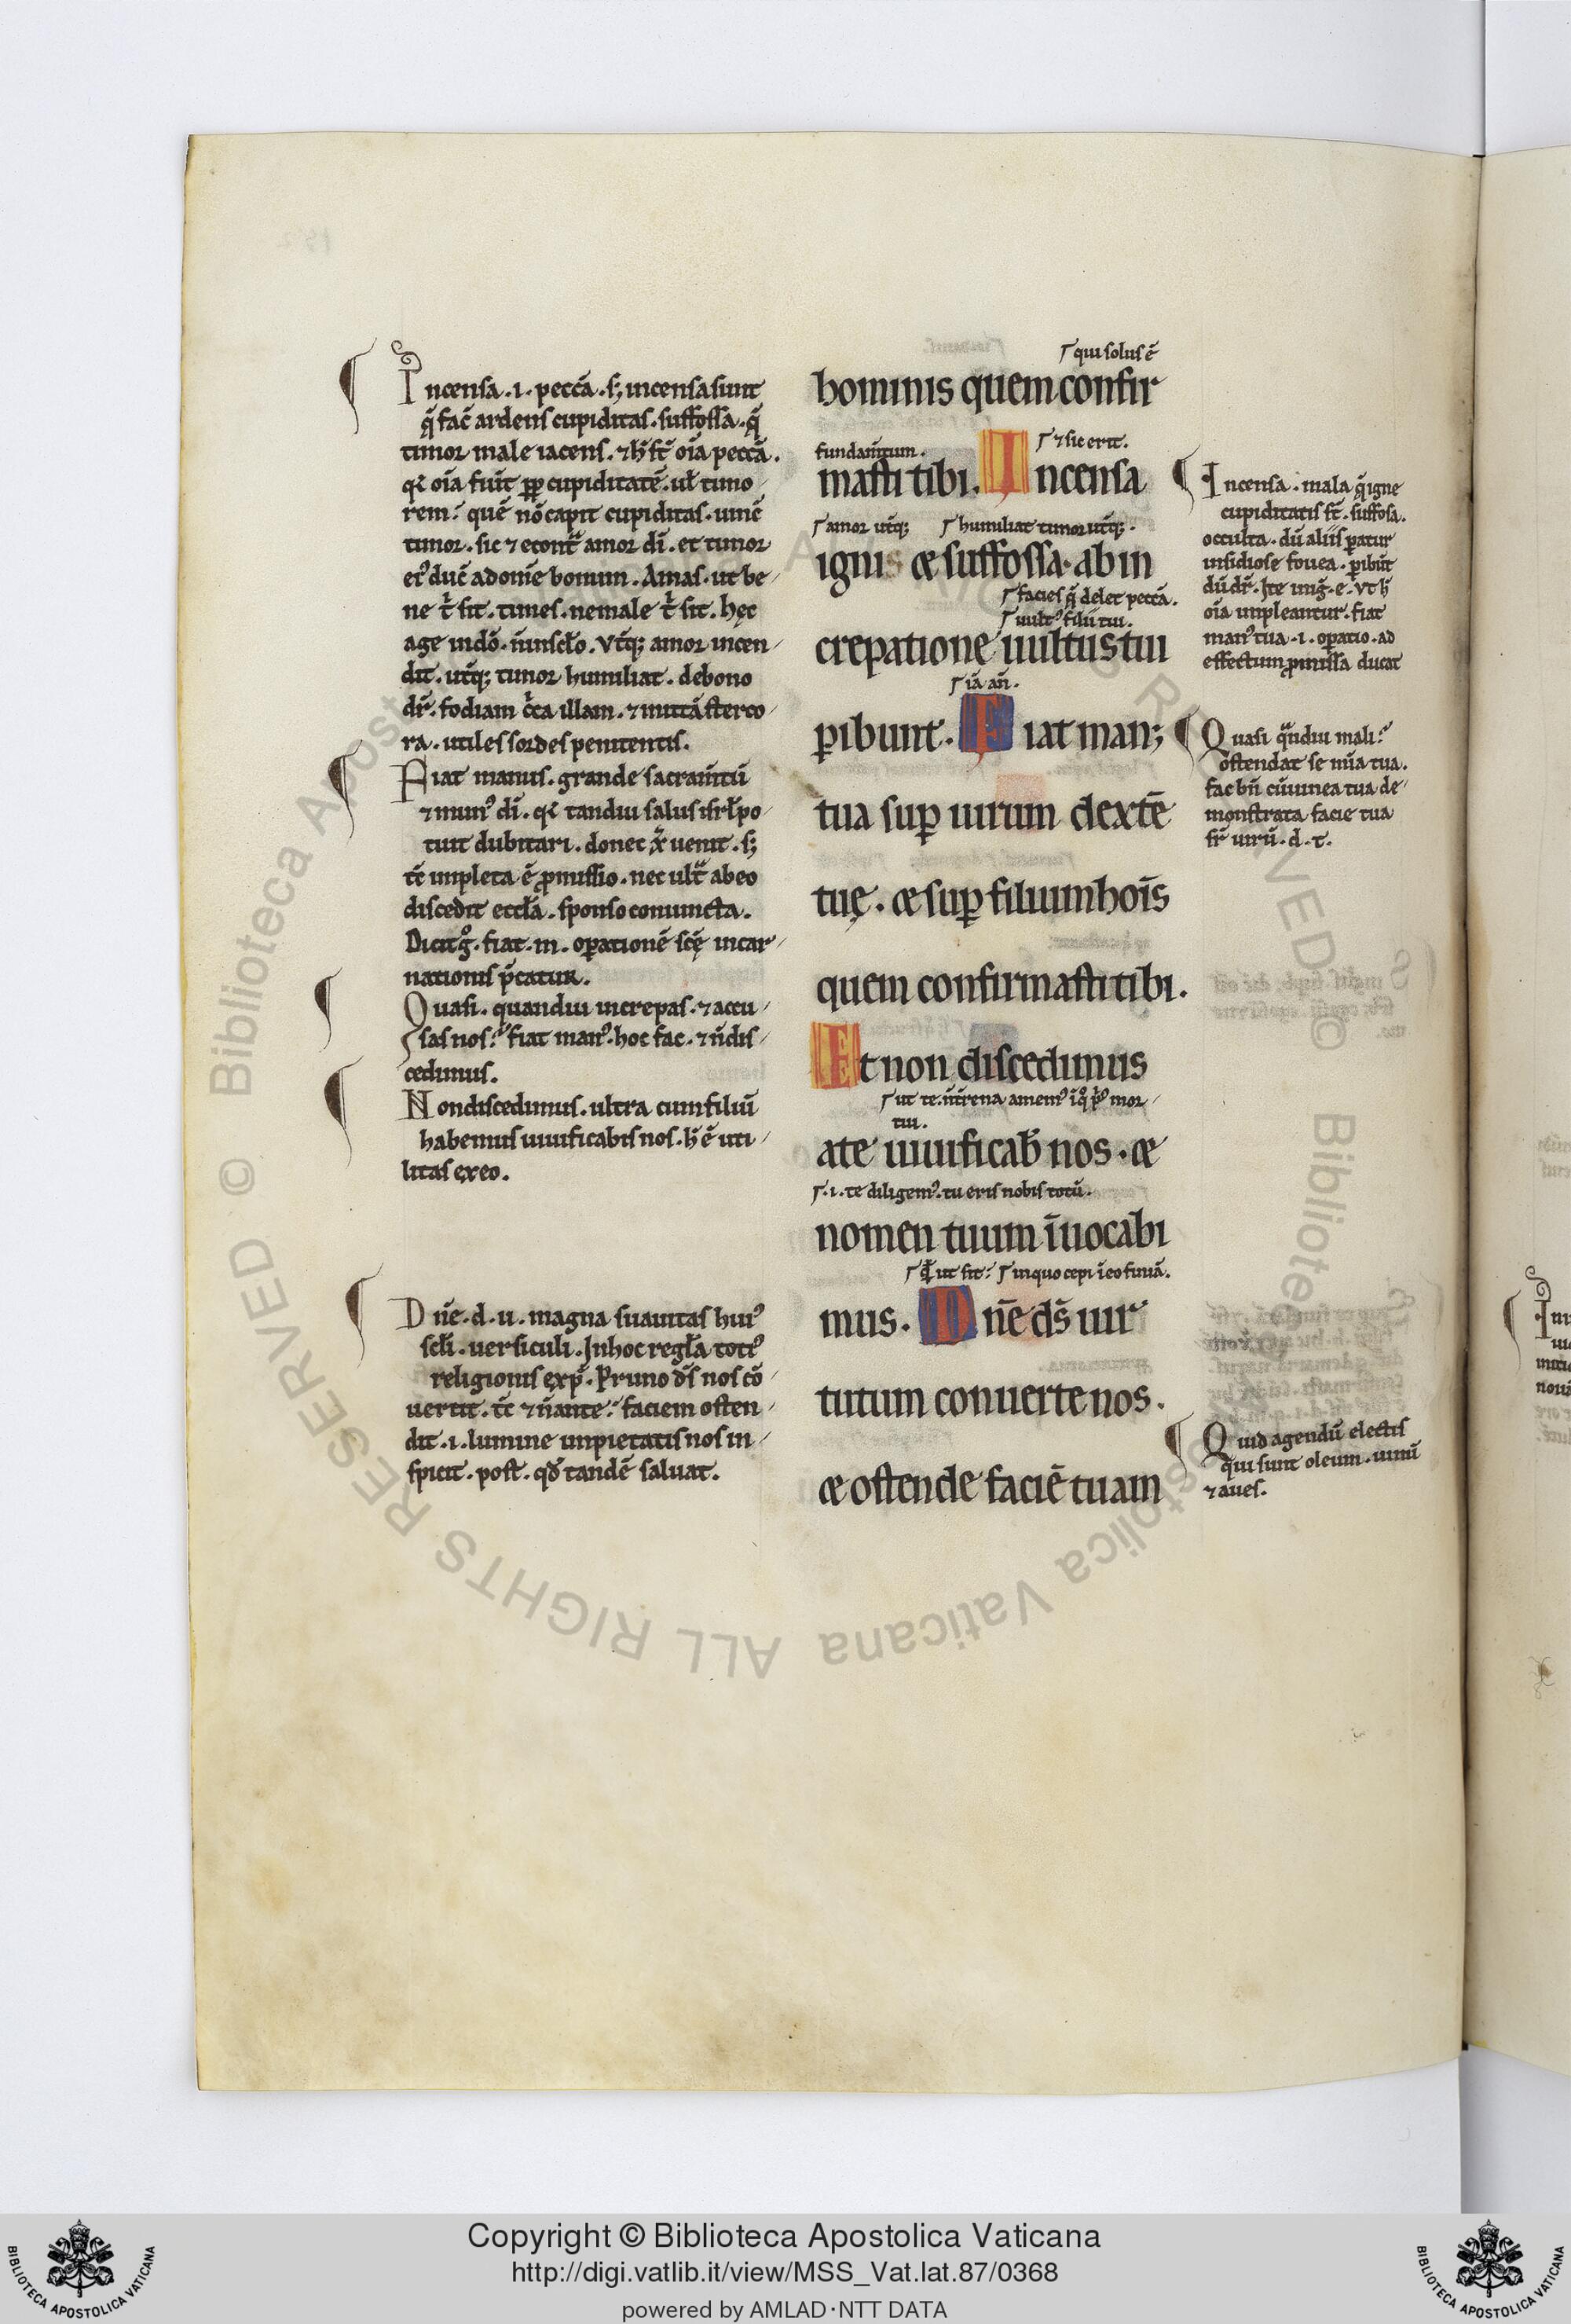 Incensa .i. peccā. sꝫ incensa sunt
q̄ fac̄ ardens cupiditas. suffossa. q̄
timor male iacens. ⁊ h̄ sт̄ oīa peccā.
qꝛ oīa fiūt ꝓp cupiditatē. ul̄ timo
rem. quē nō capit cupiditas. uinc̄
timor. sic ⁊ econt̄ amor dī. et timor
eꝰ duc̄ ad om̄e bonum. Amas. ut be
ne t̄ sit. times. ne male t̄ sit. hęc
age in dō. n̄ in sc̄lo. Vtq̄ꝫ amor incen
dit. utq̄ꝫ timor humiliat. de bono
dr̄. fodiam c̄ca illam. ⁊ mittā sterco
ra. utiles sordes penitentis.
Fiat manus. grande sacram̄tū
⁊ munꝰ dī. qꝛ tandiu salus isrl̄ po
tuit dubitari. donec xр̄ uenit. sꝫ
tc̄ impleta ē ꝓmissio. nec ult̄ ab eo
discedit eccl̄a. sponso coniuncta.
Dicit g̊. fiat. m. oꝑationē sc̄ę incar
nationis p̄catur.
Quasi. quandiu increpas. ⁊ accu
sas nos. fiat manꝰ. hoc fac. ⁊ n̄ dis
cedimus.
Non discedimus. ultra cum filiū
habemus uiuificabis nos. h̄ ē uti
litas ex eo.
Dn̄e. d. u. magna suauitas huiꝰ
scl̄i. uersiculi. In hoc regl̄a totiꝰ
religionis exp̄. Primo ds̄ nos cō
uertit. tc̄ ⁊ n̄ ante. faciem osten
dit .i. lumine impietatis nos in
spicit. post. qd̄ tandē saluat.
qui solus ē
hominis quem confir
fundam̄tum. ⁊ sic erit.
masti tibi. Incensa
amor utq̄ꝫ humiliat timor utq̄ꝫ.
igni æ suffossa. ab in
facies q̄ delet peccā.
uultꝰ filii tui.
crepatione uultus tui
iā an̄.
ꝑibunt. Fiat man;
tua suꝑ uirum dextē
tuę. æ suꝑ filium hoīs
quem confirmasti tibi.
Et non discedimus
ut te. n̄ t̄rena amemꝰ
tui.
ate uiuificab̄ nos. æ
.i. te diligemꝰ. tu eris nobis totū.
nomen tuum īuocabi
ut fit. in quo cepi ī eo finiā.
mus. Dn̄e ds̄ uir
tutum conuerte nos.
æ ostende faciē tuam
Incensa. mala q̄ igne
cupiditatis sт̄. suffosa.
occulta. dū aliis ꝑatur
insidiose fouea. ꝑibūt
dū dr̄. Ite in iḡ. e. Vt h̄
oīa impleantur. fiat
manꝰ tua .i. oꝑatio. ad
effectum ꝓmissa ducat
Quasi q̄ndiu mali.
ostendat se mīa tua.
fac bn̄ cū uinea tua de
monstrata facie tua
sr̄ uirū. d. t.
Quid agendū electis
qui sunt oleum. uinū
⁊ aues.
Copyright © Biblioteca Apostolica Vaticana
http://digi.vatlib.it/view/MSS_Vat.lat.87/0368
powered by AMLAD·NTT DATA
BIBLIOTECA APOSTOLICA VATICANA
BIBLIOTECA APOSTOLICA VATICANA